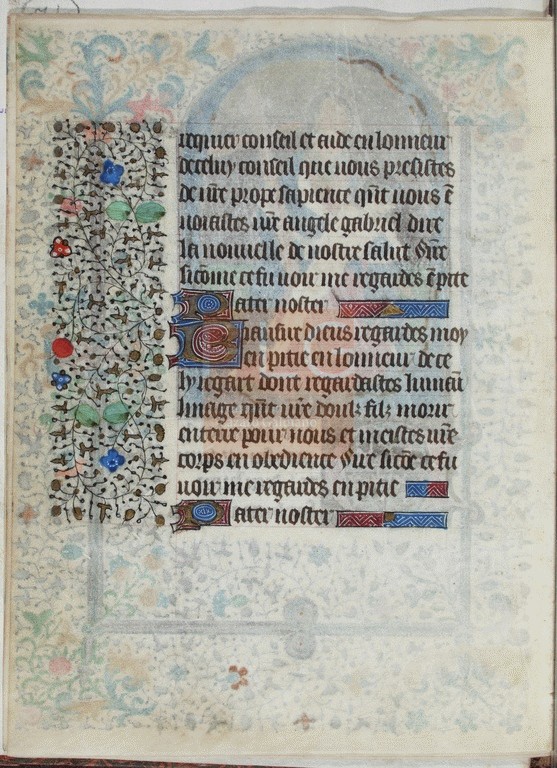 requier conseil et aide en lonneur
de celuy conseil que nous presistes
de vr̄e propre sapience qn̄t nous ē
uoiastes vr̄e angele gabriel dire
la nouuelle de nostre salut Sire
sicōme ce fu uoir me regardes ē pite
Pater noster
Biausire dieus regardes moy
en pitie en lonneur de ce
ly regart dont regardastes humaī
linage qn̄t vr̄e doulz filz morir
en terre pour nous et meistes vr̄e
corps en obedience Sire sicōe ce fu
uoir me regardes en pitie
Pater noster